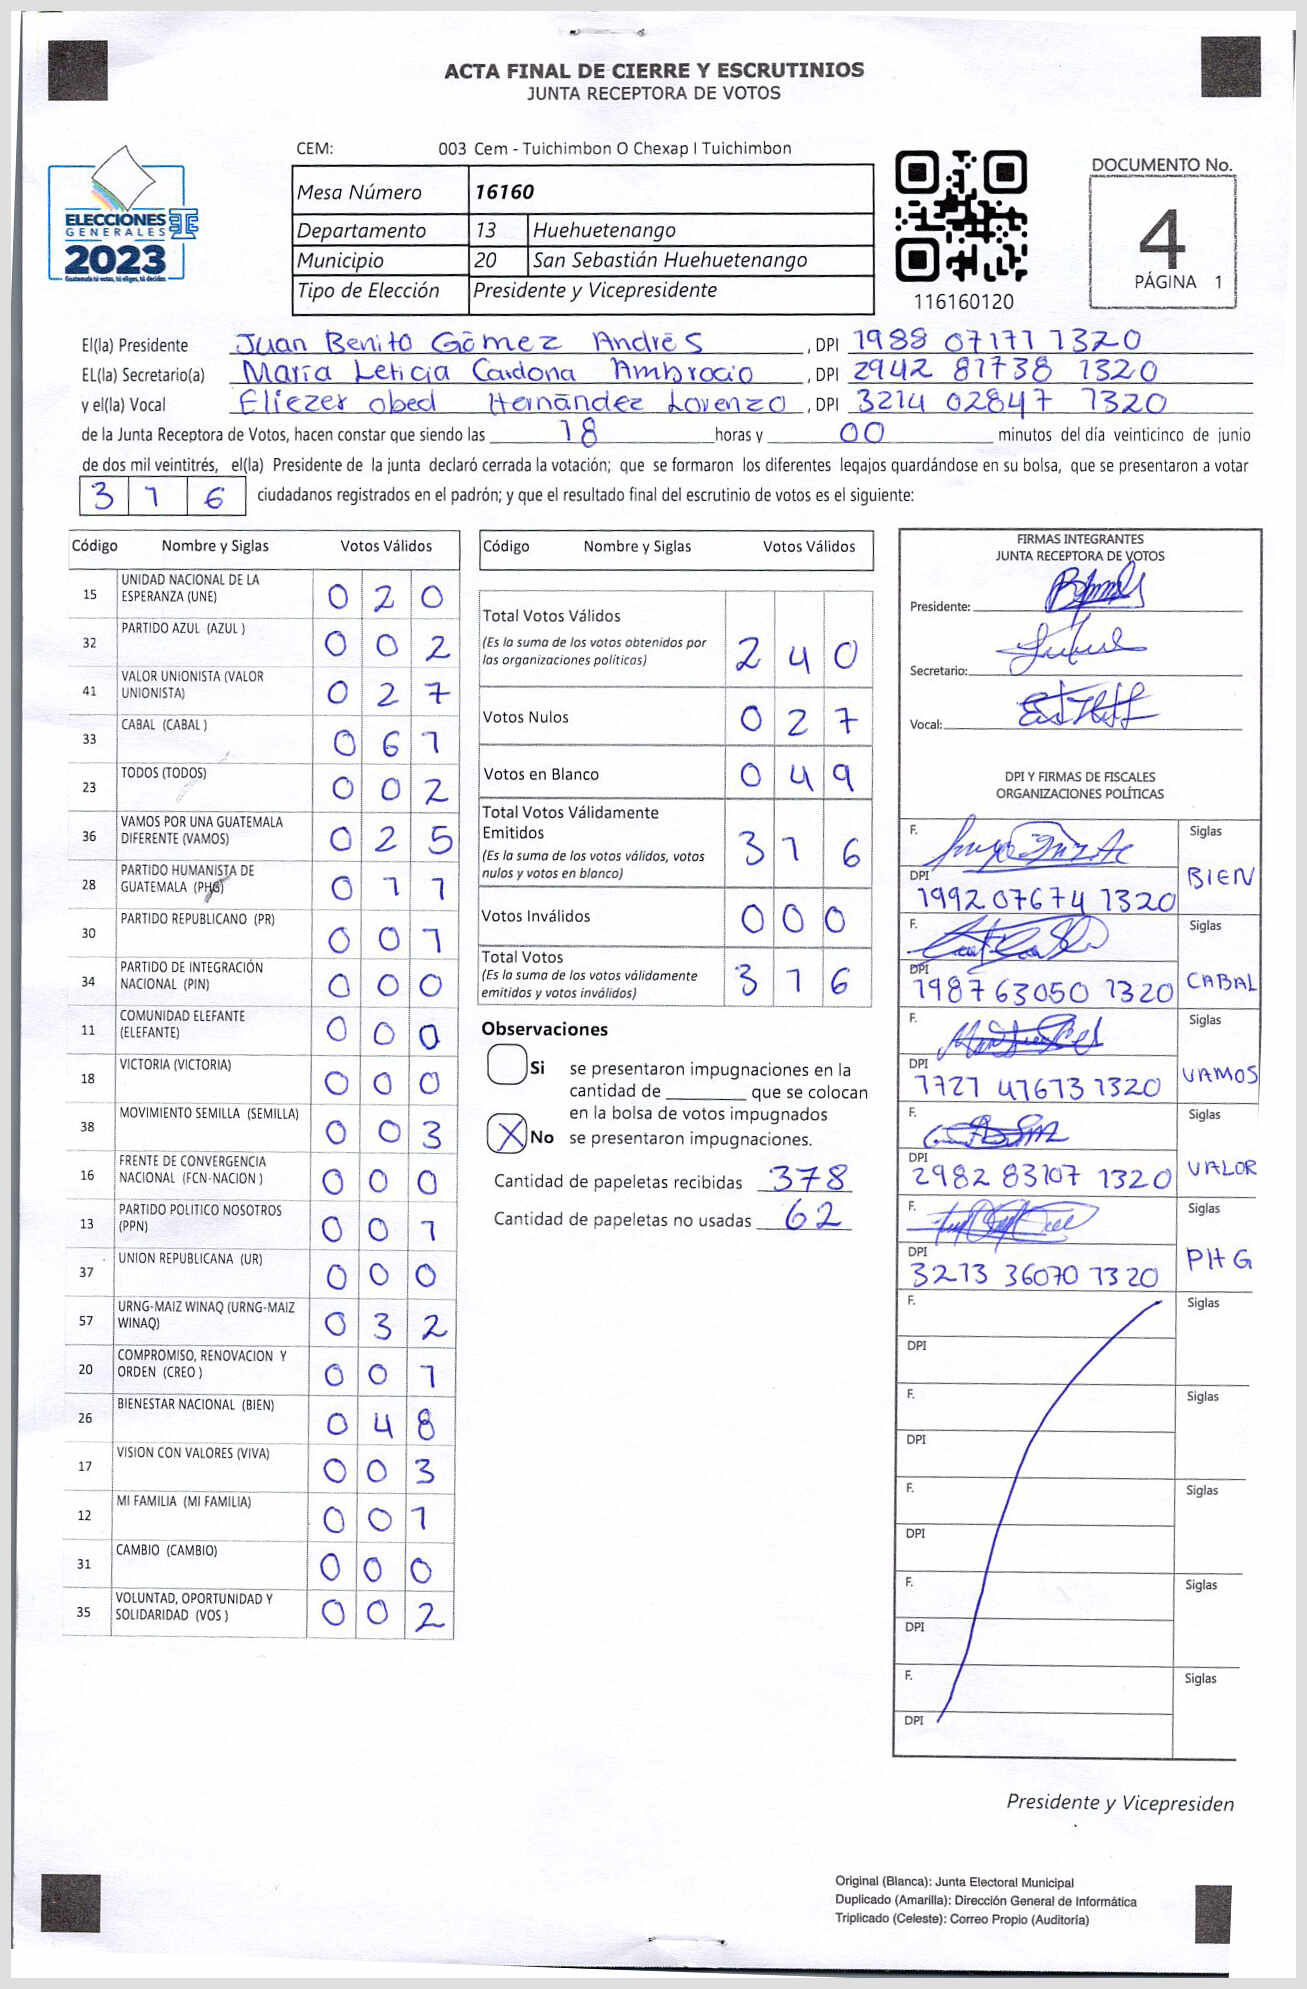 ACTA FINAL DE CIERRE Y ESCRUTINIOS
JUNTA RECEPTORA DE VOTOS
CEM: 003 Cem - Tuichimbon O Chexap I Tuichimbon
ELECCIONES
GENERALES
TSE
2023
Guatemala tú votas, tú eliges, tú decides
Mesa Número 16160
Departamento 13 Huehuetenango
Municipio 20 San Sebastián Huehuetenango
Tipo de Elección Presidente y Vicepresidente
116160120
DOCUMENTO No.
4
PÁGINA 1
El(la) Presidente Juan Benito Gómez Andrés , DPI 1988 07177 1320
EL(la) Secretario(a) María Leticia Cardona Ambrocio , DPI 2942 81738 1320
y el(la) Vocal Eliezer obed Hernández Lorenzo , DPI 3214 02847 1320
de la Junta Receptora de Votos, hacen constar que siendo las 18 horas y 00 minutos del día veinticinco de junio
de dos mil veintitrés, el(la) Presidente de la junta declaró cerrada la votación; que se formaron los diferentes legajos guardándose en su bolsa, que se presentaron a votar
3 1 6 ciudadanos registrados en el padrón; y que el resultado final del escrutinio de votos es el siguiente:
Código Nombre y Siglas Votos Válidos
15 UNIDAD NACIONAL DE LA ESPERANZA (UNE) 0 2 0
32 PARTIDO AZUL (AZUL ) 0 0 2
41 VALOR UNIONISTA (VALOR UNIONISTA) 0 2 7
33 CABAL (CABAL ) 0 6 1
23 TODOS (TODOS) 0 0 2
36 VAMOS POR UNA GUATEMALA DIFERENTE (VAMOS) 0 2 5
28 PARTIDO HUMANISTA DE GUATEMALA (PHG) 0 1 1
30 PARTIDO REPUBLICANO (PR) 0 0 1
34 PARTIDO DE INTEGRACIÓN NACIONAL (PIN) 0 0 0
11 COMUNIDAD ELEFANTE (ELEFANTE) 0 0 0
18 VICTORIA (VICTORIA) 0 0 0
38 MOVIMIENTO SEMILLA (SEMILLA) 0 0 3
16 FRENTE DE CONVERGENCIA NACIONAL (FCN-NACION ) 0 0 0
13 PARTIDO POLITICO NOSOTROS (PPN) 0 0 1
37 UNION REPUBLICANA (UR) 0 0 0
57 URNG-MAIZ WINAQ (URNG-MAIZ WINAQ) 0 3 2
20 COMPROMISO, RENOVACION Y ORDEN (CREO ) 0 0 1
26 BIENESTAR NACIONAL (BIEN) 0 4 8
17 VISION CON VALORES (VIVA) 0 0 3
12 MI FAMILIA (MI FAMILIA) 0 0 1
31 CAMBIO (CAMBIO) 0 0 0
35 VOLUNTAD, OPORTUNIDAD Y SOLIDARIDAD (VOS ) 0 0 2
Código Nombre y Siglas Votos Válidos
Total Votos Válidos
(Es la suma de los votos obtenidos por las organizaciones políticas) 2 4 0
Votos Nulos 0 2 7
Votos en Blanco 0 4 9
Total Votos Válidamente Emitidos
(Es la suma de los votos válidos, votos nulos y votos en blanco) 3 1 6
Votos Inválidos 0 0 0
Total Votos
(Es la suma de los votos válidamente emitidos y votos inválidos) 3 1 6
Observaciones
Si se presentaron impugnaciones en la
cantidad de ________ que se colocan
en la bolsa de votos impugnados
X No se presentaron impugnaciones.
Cantidad de papeletas recibidas 378
Cantidad de papeletas no usadas 62
FIRMAS INTEGRANTES
JUNTA RECEPTORA DE VOTOS
Presidente:
Secretario:
Vocal:
DPI Y FIRMAS DE FISCALES
ORGANIZACIONES POLÍTICAS
F. Siglas
DPI 1992 07674 1320 BIEN
F. Siglas
DPI 1987 63050 1320 CABAL
F. Siglas
DPI 1721 41673 1320 VAMOS
F. Siglas
DPI 2982 83107 1320 VALOR
F. Siglas
DPI 3213 36070 1320 PHG
F. Siglas
DPI
F. Siglas
DPI
F. Siglas
DPI
F. Siglas
DPI
F. Siglas
DPI
Presidente y Vicepresiden
Original (Blanca): Junta Electoral Municipal
Duplicado (Amarilla): Dirección General de Informática
Triplicado (Celeste): Correo Propio (Auditoría)